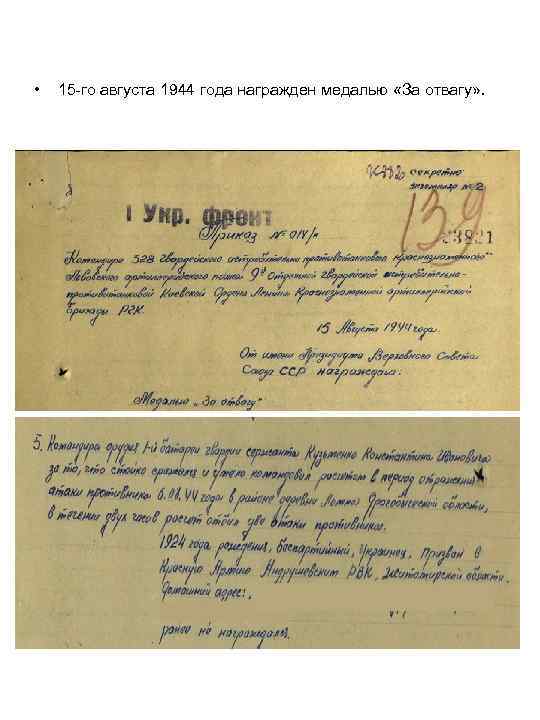 • 15-го августа 1944 года награжден медалью «За отвагу».
секретно
экземпляр № 2
I Укр. фронт
139
Приказ № 014/н
Командира 328 гвардейского истребительно противотанкового Краснознаменного
Львовского артиллерийского полка 9й Отдельной гвардейской истребительно-
противотанковой Киевской Ордена Ленина Краснознаменной артиллерийской
бригады РГК.
15 Августа 1944 года.
От имени Президиума Верховного Совета
Союза ССР награждаю:
Медалью „За отвагу"
5. Командира орудия 1-й батареи гвардии сержанта Кузьменко Константина Ивановича
за то, что стойко сражался и умело командовал расчетом в период отражения
атаки противника 6.08.44 года в районе деревни Дрогобычской области,
в течении двух часов расчет отбил две атаки противника.
1924 года рождения, беспартийный, Украинец. Призван в
Красную Армию Андрушевским РВК, Житомирской области.
Домашний адрес:
ранее не награждался.